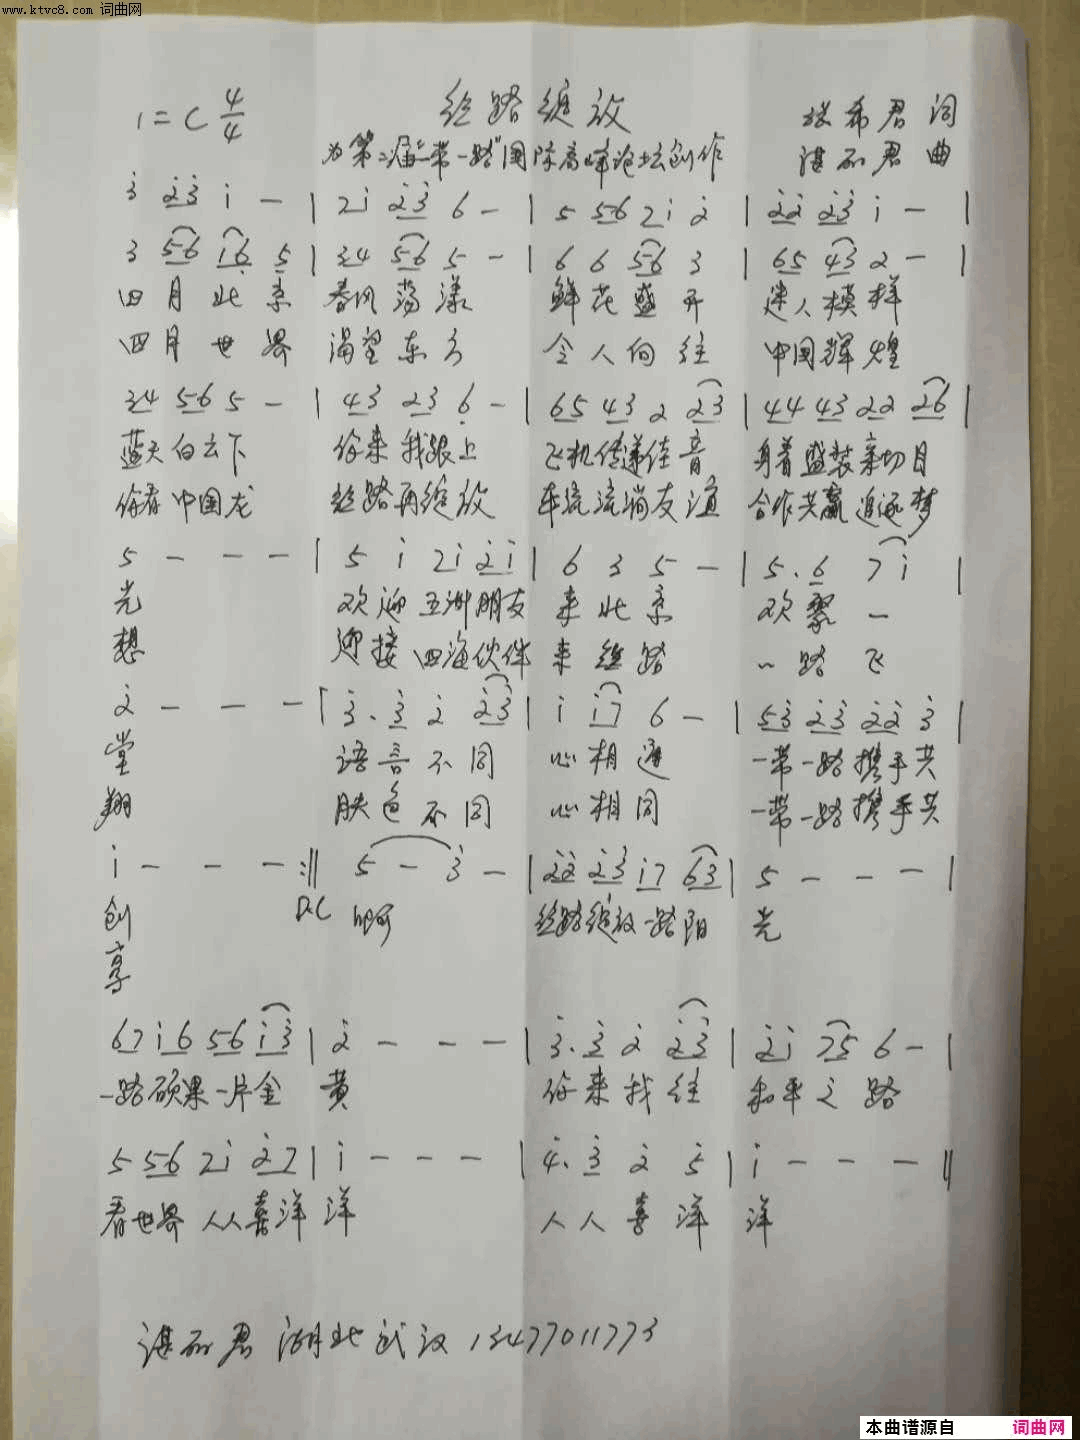 www.ktvc8.com 词曲网
1=C 4/4 丝路绽放 张希君 词
为第二届“一带一路”国际高峰论坛创作 谌丽君 曲
3̇ 2̇3̇ 1̇ - | 71̇ 2̇3̇ 6 - | 5 56 71̇ 2̇ | 2̇2̇ 2̇3̇ 1̇ - |
3 56 16̣ 5̣ | 34 56 5 - | 6 6 56 3 | 65 43 2 - |
四月北京 春风荡漾 鲜花盛开 迷人模样
四月世界 渴望东方 令人向往 中国辉煌
34 56 5 - | 43 23 6̣ - | 65 43 2 23 | 44 43 22 26̣ |
蓝天白云下 你来我跟上 飞机传递佳音 身着盛装亲切目
你看中国龙 丝路再绽放 车流流淌友谊 合作共赢追逐梦
5 - - - | 5 1̇ 71̇ 2̇1̇ | 6 3 5 - | 5. 6 71̇ |
光 欢迎五洲朋友 来北京 欢聚一
想 迎接四海伙伴 来丝路 一路飞
2̇ - - - | 3̇. 3̇ 2̇ 2̇3̇ | 1̇ 1̇7 6 - | 53̇ 2̇3̇ 2̇2̇ 3̇ |
堂 语言不同 心相通 一带一路携手共
翔 肤色不同 心相同 一带一路携手共
1̇ - - - :‖ 5 - 3̇ - | 2̇2̇ 2̇3̇ 1̇7 63 | 5 - - - |
创 D.C 啊 丝路绽放一路阳 光
享
67 1̇6 56 1̇3̇ | 2̇ - - - | 3̇. 3̇ 2̇ 2̇3̇ | 2̇1̇ 75 6 - |
一路硕果一片金 黄 你来我往 和平之路
5 56 71̇ 2̇7 | 1̇ - - - | 4̇. 3̇ 2̇ 5̇ | 1̇ - - - ‖
看世界人人喜洋 洋 人人喜洋 洋
谌丽君 湖北武汉 13477011773
本曲谱源自 词曲网